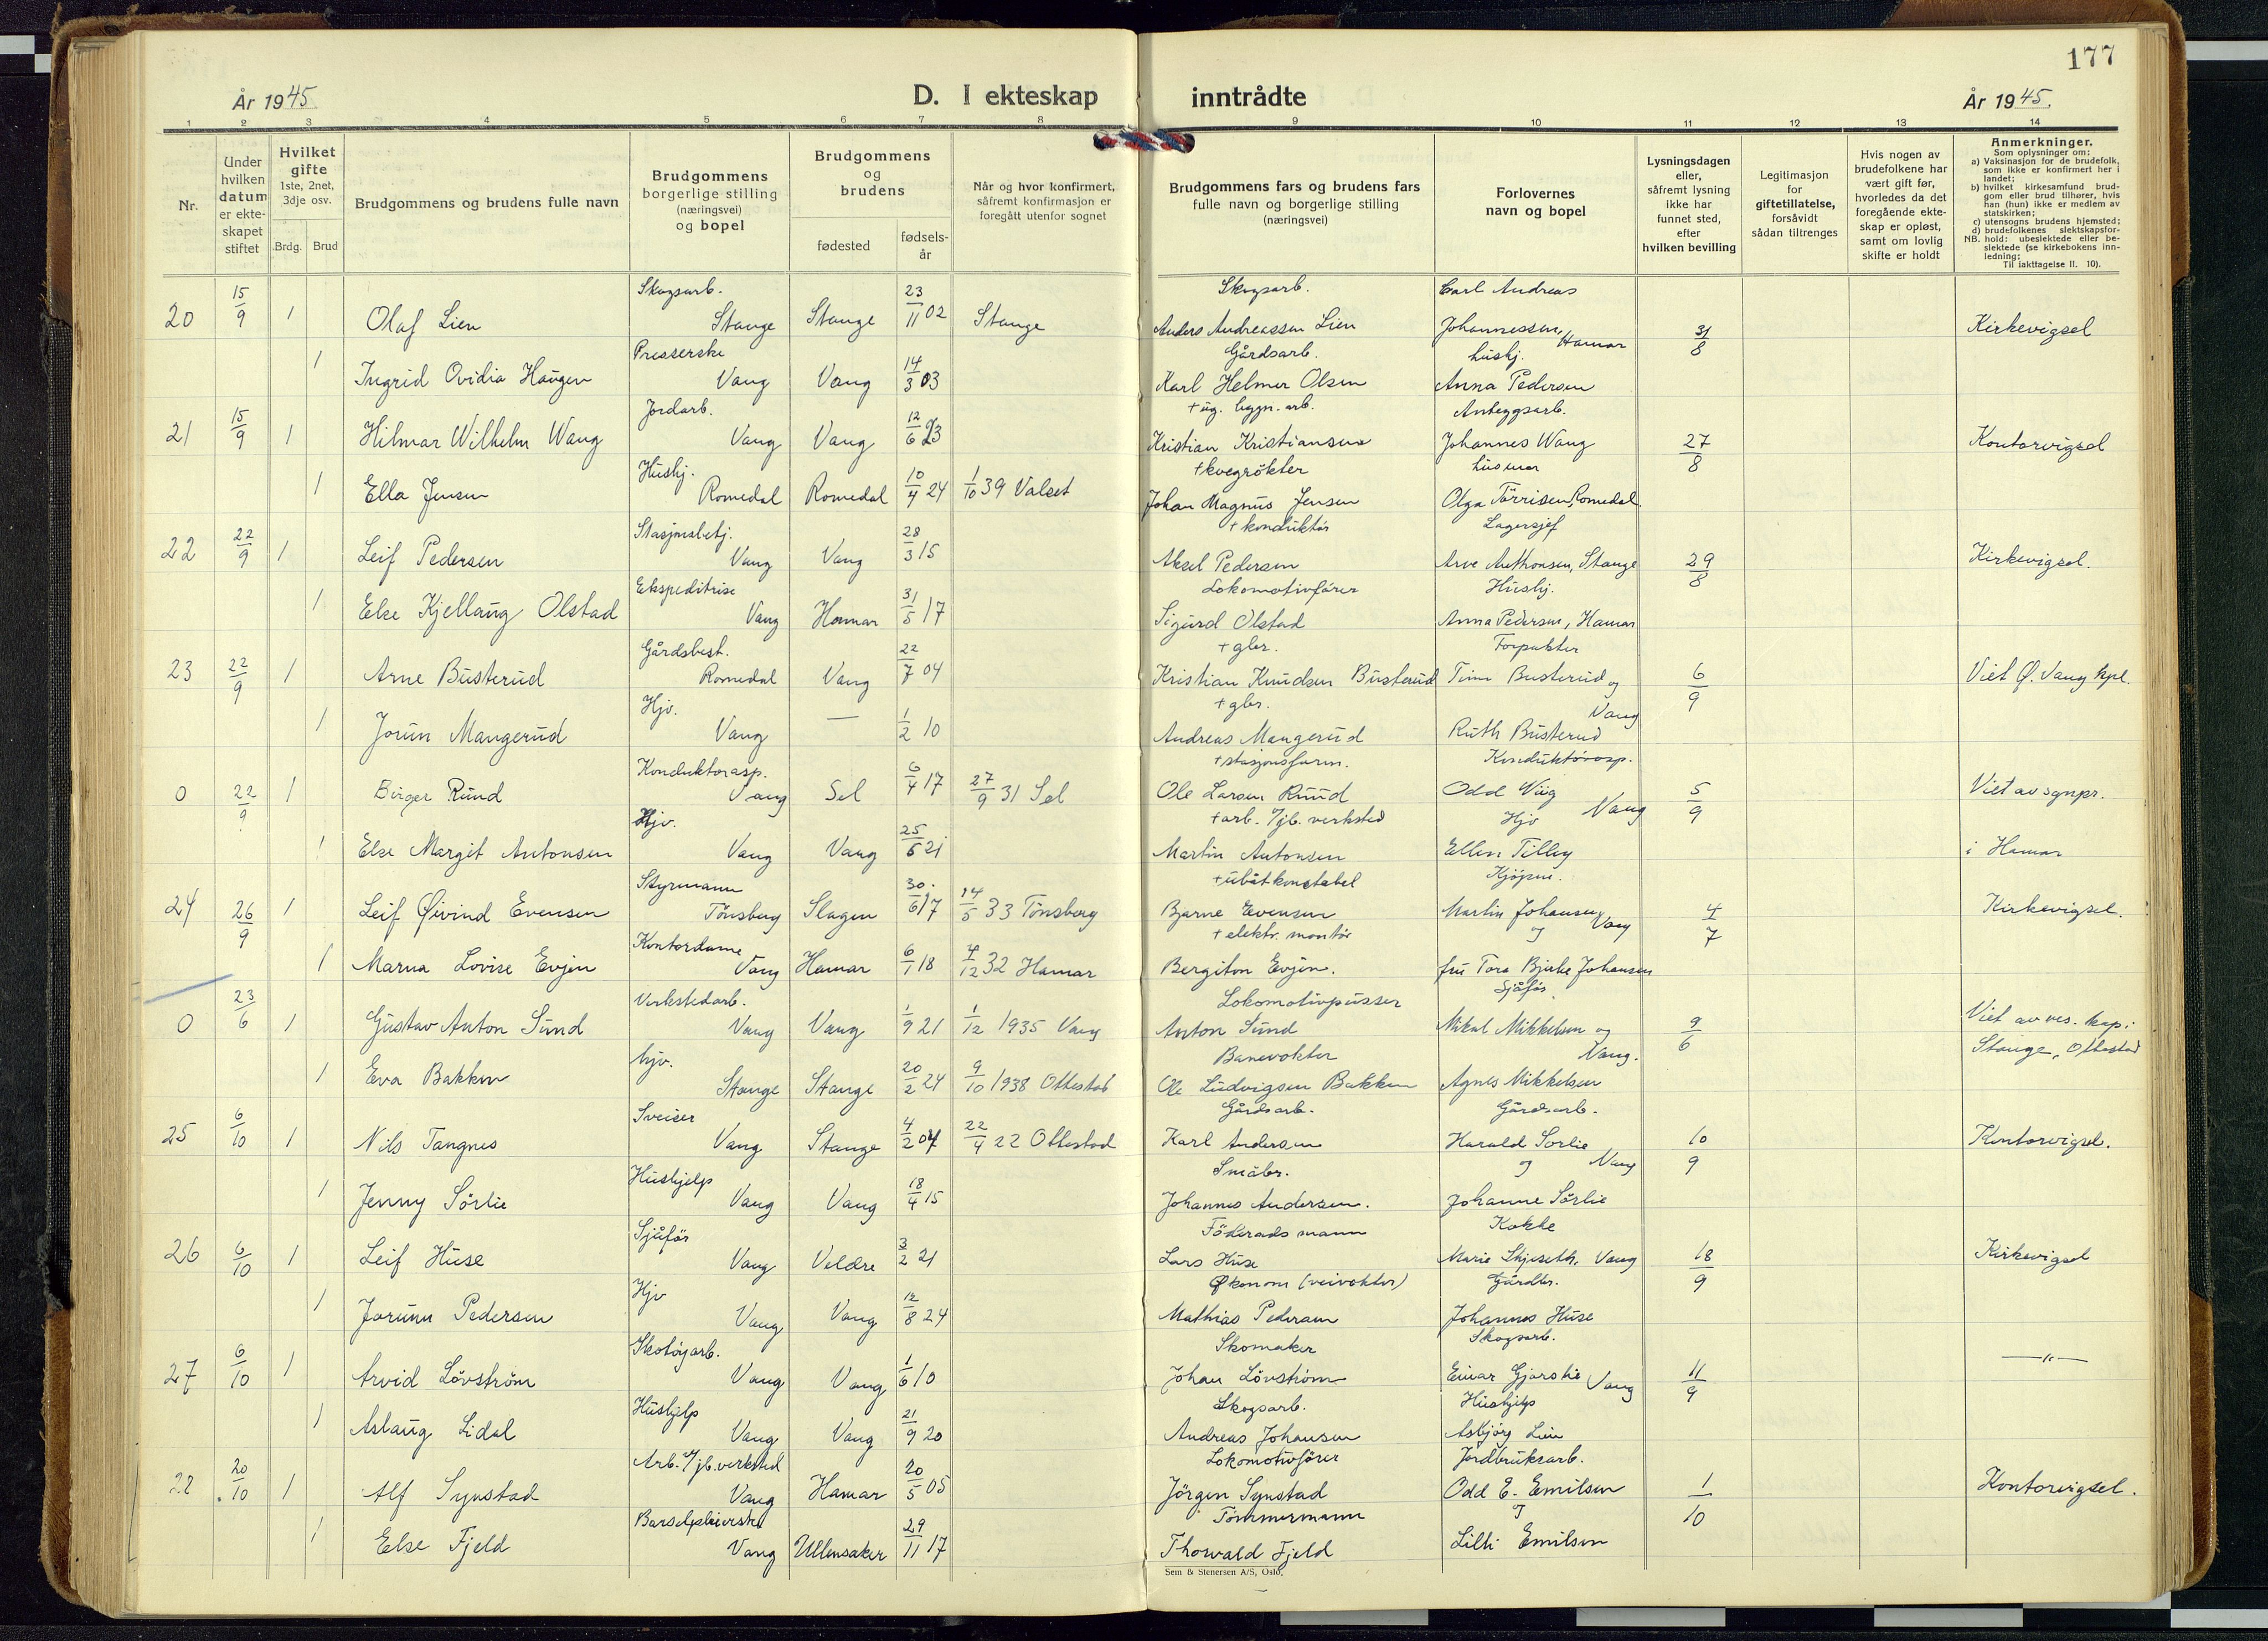 177
År 1945
D. I ekteskap inntrådte
År 1945.
1 2 3 4 5 6 7 8 9 10 11 12 13 14
Nr.
Under hvilken datum er ekte- skapet stiftet
Hvilket gifte 1ste, 2net, 3dje osv.
Brdg. Brud
Brudgommens og brudens fulle navn
Brudgommens borgerlige stilling (næringsvei) og bopel
Brudgommens og brudens
fødested
fødsels- år
Når og hvor konfirmert, såfremt konfirmasjon er foregått utenfor sognet
Brudgommens fars og brudens fars fulle navn og borgerlige stilling (næringsvei)
Forlovernes navn og bopel
Lysningsdagen eller, såfremt lysning ikke har funnet sted, efter hvilken bevilling
Legitimasjon for giftetillatelse, forsåvidt sådan tiltrenges
Hvis nogen av brudefolkene har vært gift før, hvorledes da det foregående ekte- skap er opløst, samt om lovlig skifte er holdt
Anmerkninger.
Som oplysninger om:
a) Vaksinasjon for de brudefolk, som ikke er konfirmert her i landet;
b) hvilket kirkesamfund brud- gom eller brud tilhører, hvis han (hun) ikke er medlem av statskirken;
c) utensogns brudens hjemsted;
d) brudefolkenes slektskapsfor-
NB. hold: ubeslektede eller be- slektede (se kirkebokens inn- ledning; Til iakttagelse II. 10).
Skogsarb. 23 Skogsarb. Carl Andreas
20 15/9 1 Olaf Lien Stange Stange 11 02 Stange Anders Andreassen Lien Johannessen, Hamar 31/8 Kirkevigsel
Presserske Gårdsarb. hushj.
1 Ingrid Ovidia Haugen Vang Vang 14/3 03 Karl Helmer Olsen Anna Pedersen
Jordarb. Anleggsarb.
21 15/9 1 Hilmar Wilhelm Wang Vang Vang 12/6 23 Kristian Kristiansen Johannes Wang 27/8 Kontorvigsel
Hushj. + kvegrökter
1 Ella Jensen Romedal Romedal 10/4 24 1/10 39 Valset Johan Magnus Jensen Olga Törrisen, Romedal.
Stasjonsbetj. + konduktör Lagersjef
22 22/9 1 Leif Pedersen Vang Vang 28/3 15 Aksel Pedersen Arve Anthonsen, Stange 29/8 Kirkevigsel.
Ekspeditrise Lokomotivförer Hushj.
1 Else Kjellaug Olstad Vang Hamar 31/5 17 Sigurd Olstad Anna Pedersen, Hamar
Gårdsbest. + gbr. Forpakter
23 22/9 1 Arne Busterud Romedal Vang 22/7 04 Kristian Knudsen Busterud Busterud og 6/9 Viet Ø. Vang kpl.
Hjv. + gbr. Vang
1 Jorun Mangerud Vang — 1/2 10 Andreas Mangerud Ruth Busterud
Konduktorasp. + stasjonsform. Konduktörasp.
0 22/9 1 Birger Ruud Vang Sel 6/4 17 27/9 31 Sel Ole Larsen Ruud Odd Wiig Vang 5/9 Viet av sgnpr.
Hjv. + arb. v/jb. verksted Hjv
1 Else Margit Antonsen Vang Vang 25/5 21 Martin Antonsen Ellen Tilley i Hamar
Styrmann + ubåtkonstabel Kjöpm.
24 26/9 1 Leif Øivind Evensen Tönsberg Slagen 30/6 17 14/5 33 Tönsberg Bjarne Evensen Martin Johansen, Vang 4/7 Kirkevigsel.
Kontordame + elektr. montör og
1 Marna Lovise Evjen Vang Hamar 6/1 18 4/12 32 Hamar Bergiton Evjen. fru Tora Bjerke Johansen
Verkstedarb. Lokomotivpusser Sjåför
0 23/6 1 Gustav Anton Sund Vang Vang 1/9 21 1/12 1935 Vang Anton Sund Mikal Mikkelsen og 9/6 Viet av res. kap. i
hjv. Banevokter Vang. Stange, Ottestad
1 Eva Bakken Stange Stange 20/2 24 9/10 1938 Ottestad Ole Ludvigsen Bakken Agnes Mikkelsen
Sveiser Gårdsarb. Gårdsarb.
25 6/10 1 Nils Tangnes Vang Stange 4/2 07 22/4 22 Ottestad Karl Andersen Harald Sorlie 10/9 Kontorvigsel.
Hushjelp Småbr. og Vang
1 Jenny Sörlie Vang Vang 18/4 15 Johannes Andersen. Johanne Sörlie
Sjåför Föderadsmann Kokke
26 6/10 1 Leif Huse Vang Veldre 3/2 21 Lars Huse Marie Skjeseth, Vang 18/9 Kirkevigsel
Hjv Økonom (veivokter) Gårdbr.
1 Jorunn Pedersen Vang Vang 12/8 24 Mathias Pedersen Johannes Huse
Skotöyarb. Skomaker Skogsarb.
27 6/10 1 Arvid Lövström Vang Vang 1/6 10 Johan Lövström Einar Vang 11/9 —"—
Hushjelp Skogsarb. Hushjelp
1 Aslaug Lidal Vang Vang 21/9 20 Andreas Johansen Asbjörg Lien
Arb. v/jb. verksted Lokomotivförer Jordbruksarb.
22 20/10 1 Alf Synstad Vang Hamar 20/5 05 Jörgen Synstad Odd E. Emilsen 1/10 Kontorvigsel.
Barselpleierske Tömmermann og
1 Else Fjeld Vang Ullensaker 29/11 17 Thorvald Fjeld Lilli Emilsen
Sem & Stenersen A/S, Oslo.